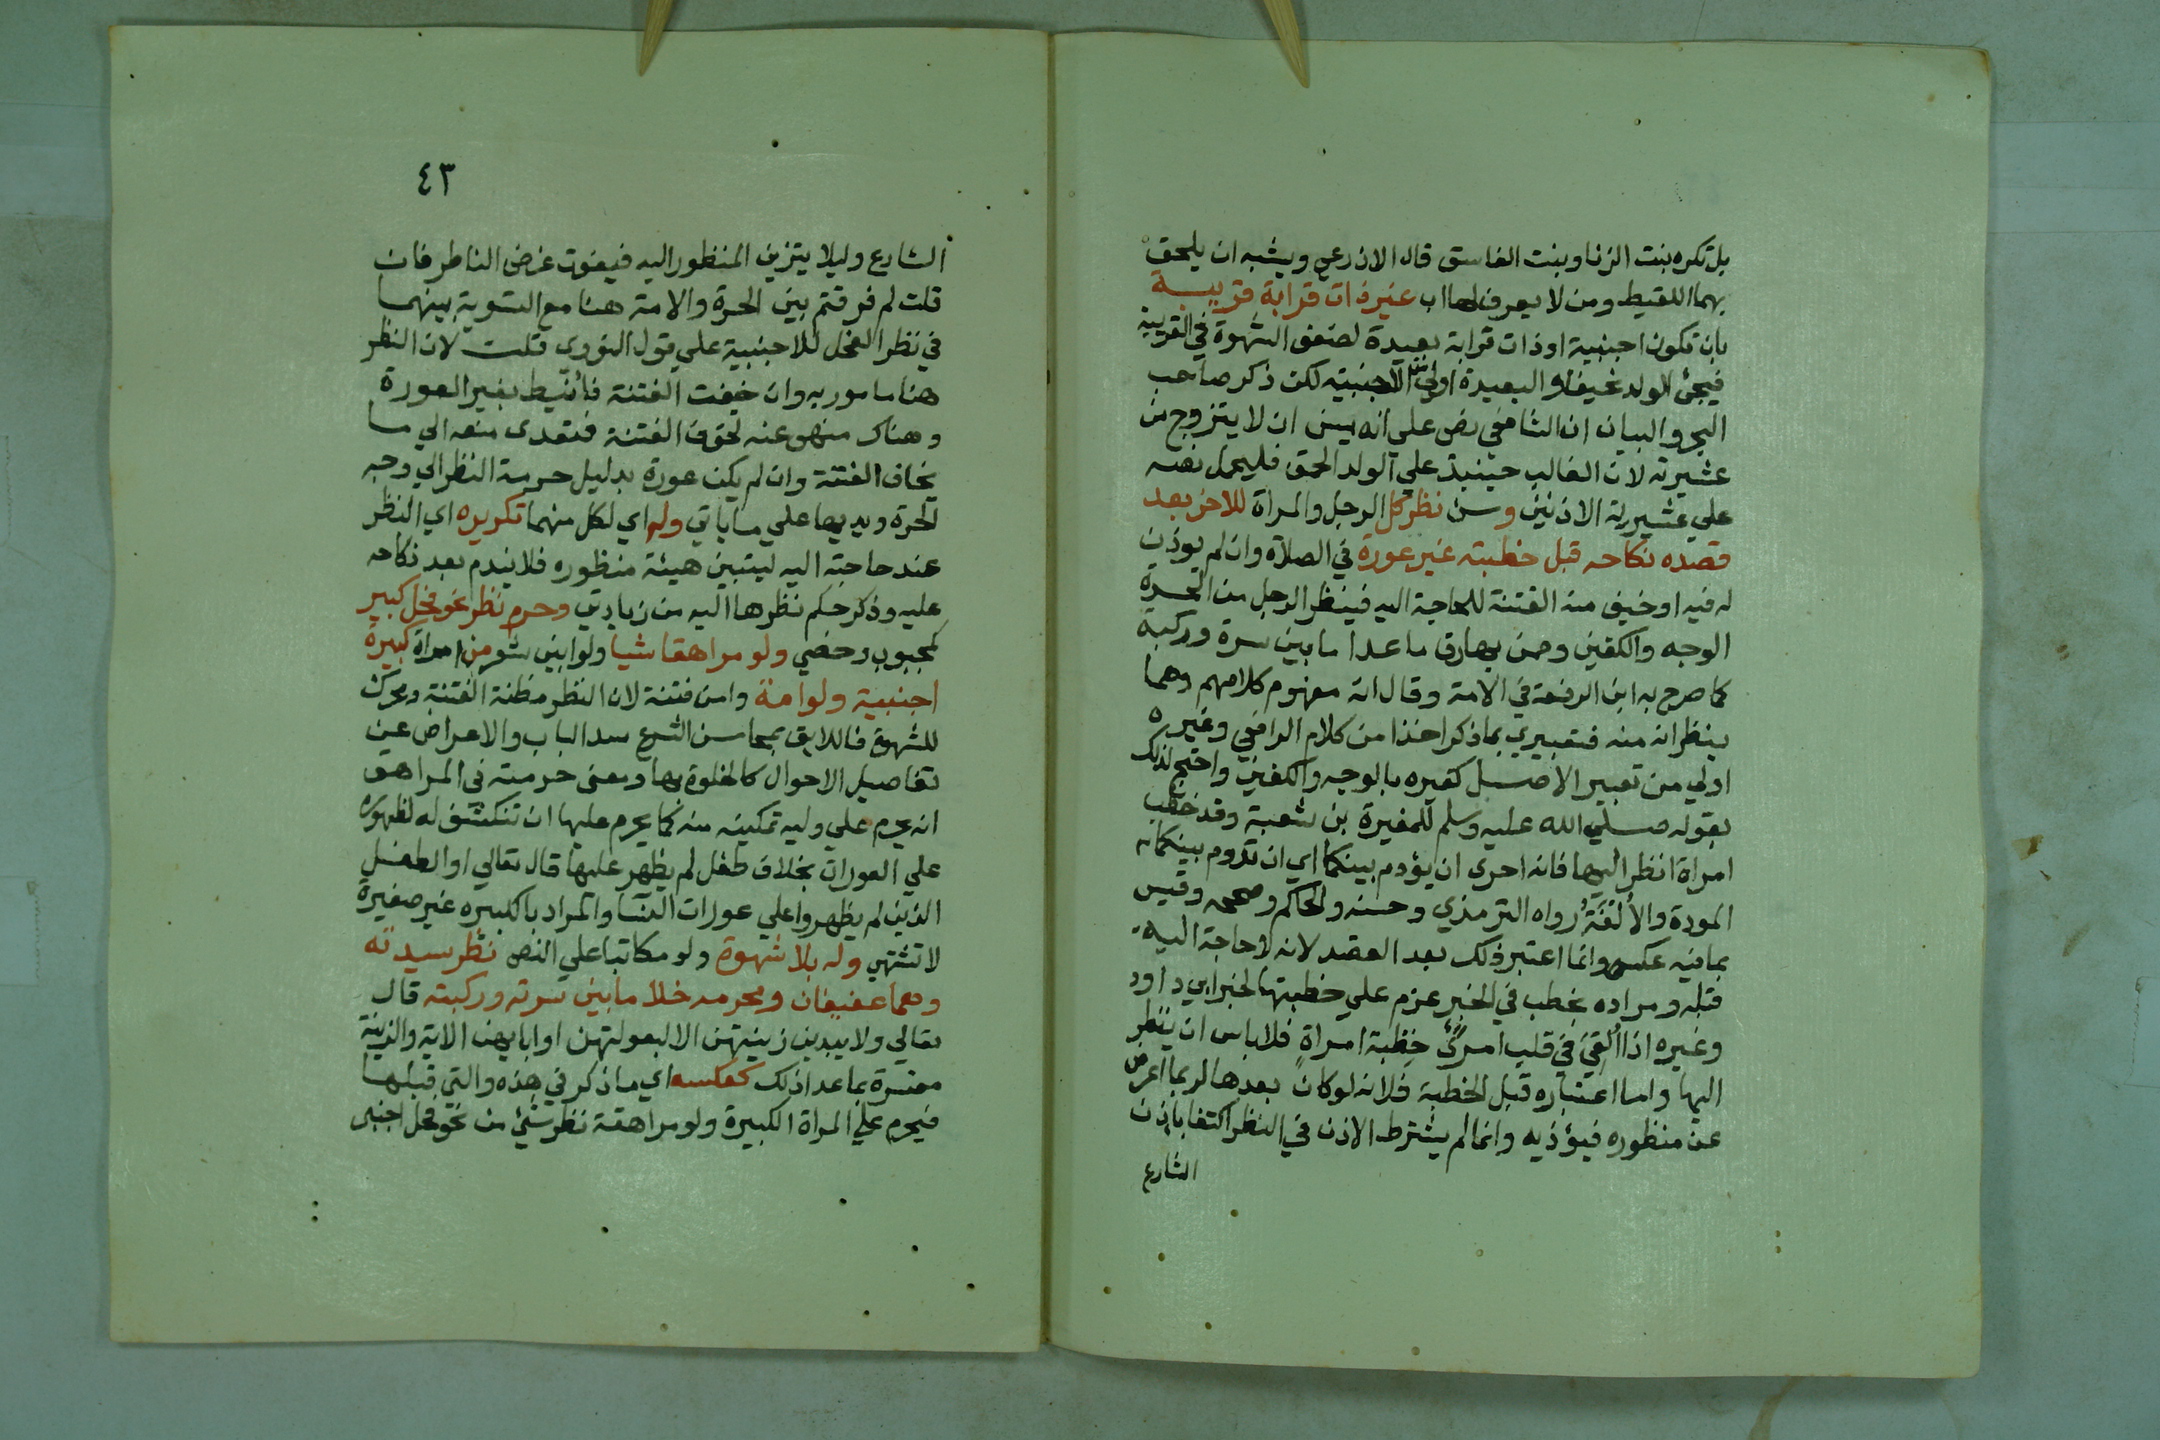 بل تكره بنت الزنا وبنت الفاسق قال الاذرعي ويشبه ان يلحق
بهما اللقيط ومن لا يعرف لها اب غير ذات قرابة قريبة
بان تكون اجنبية او ذات قرابة بعيدة لضعف الشهوة في القريبة
فيجئ الولد نحيفا والبعيدة اولي من الاجنبية لكن ذكر صاحب
البحر والبيان ان الشافعي نص علي انه يسن ان لا يتزوج من
عشيرته لان الغالب حينيذ علي الولد الحمق فليحمل نصه
علي عشيرية الادنين وسن نظر كل الرجل والمراة للاخر بعد
قصده نكاحه قبل خطبته غير عورة في الصلاة وان لم يوذن
له فيه او خيف منه الفتنة للحاجة اليه فينظر الرجل من الحرة
الوجه والكفين ومن بها رق ما عدا ما بين سرة وركبة
كما صرح به ابن الرفعة في الامة وقال انه مفهوم كلامهم وهما
ينظرانه منه فتعبيري بما ذكر اخذا من كلام الرافعي وغيره
اولي من تعبير الاصل كغيره بالوجه والكفين واحتج لذلك
بقوله صلي الله عليه وسلم للمغيرة بن شعبة وقد خطب
امراة انظر اليها فانه احرى ان يؤدم بينكما اي ان تدوم بينكما
المودة والألفَةُ رواه الترمذي وحسنه والحاكم وصححه وقيس
بما فيه عكسه وانما اعتبر ذلك بعد القصد لانه لا حاجة اليه
قبله ومراده بخطب في الخبر عزم علي خطبتها لخبر ابي داود
وغيره اذا أُلقِيَ في قلب امرئٍ خِطْبَة امراةٍ فلا باس ان ينظر
اليها واما اعتباره قبل الخطبة فلانه لو كان بعدها لربما اعرض
عن منظوره فيؤذيه وانما لم يشترط الاذن في النظر اكتفا باذن
الشارع
٤٣
الشارع وليلا يتزين المنظور اليه فيفوت غرض الناظر فان
قلت لم فرقتم بين الحرة والامة هنا مع التسوية بينهما
في نظر الفحل للاجنبية علي قول النووي قلت لان النظر
هنا مامور به وان خيفت الفتنة فأنيط بغير العورة
وهناك منهي عنه لخوف الفتنة فتعدى منعه الي ما
يخاف الفتنة وان لم يكن عورة بدليل حرمة النظر الي وجه
الحرة ويديها علي ما ياتي وله اي لكل منهما تكريره اي النظر
عند حاجته اليه ليتبين هيئة منظوره فلا يندم بعد نكاحه
عليه وذكر حكم نظرها اليه من زيادتي وحرم نظر نحو فحل كبير
كمجبوب وخصي ولو مراهقا شيا ولو ابين كشعر من امراة كبيرة
اجنبية ولو امة وامن فتنة لان النظر مظنة الفتنة ومحرك
للشهوة فاللايق بمحاسن الشرع سد الباب والاعراض عن
تفاصيل الاحوال كالخلوة بها ومعنى حرمته في المراهق
انه يحرم علي وليه تمكينه منه كما يحرم عليها ان تنكشف له لظهوره
علي العورات بخلاف طفل لم يظهر عليها قال تعالي او الطفل
الذين لم يظهروا علي عورات النسا والمراد بالكبيره غير صغيرة
لا تشتهى وله بلا شهوة ولو مكاتبا علي النص نظر سيدته
وهما عفيفان ومحرمه خلا ما بين سرته وركبته قال
تعالي ولا يبدين زينتهن الا لبعولتهن او ابايهن الاية والزينة
مفسرة بما عدا ذلك كعكسه اي ما ذكر في هذه والتي قبلها
فيحرم علي المراة الكبيرة ولو مراهقة نظر شئ من نحو فحل اجنبي